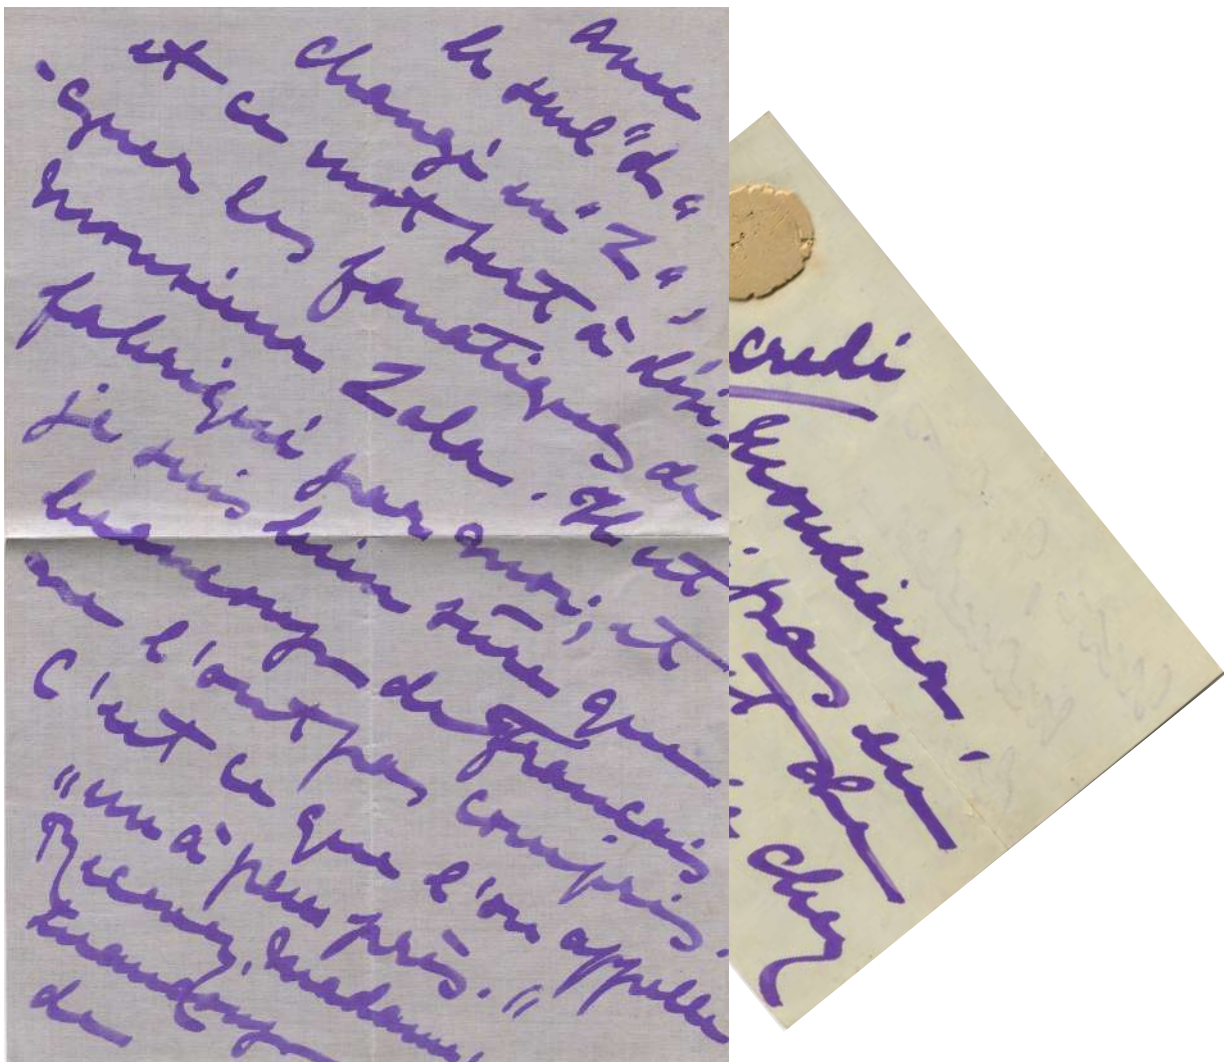 avec
le seul "d"
changé en "Z",
et ce mot sert à dési-
-gner les fanatiques de
Monsieur Zola. Il est
fabriqué par moi, et
je suis bien sûre que
beaucoup de Français
ne l'ont pas compris.
C'est ce que l'on appelle
"un à peu près."
Recevez, Madame,
de
credi
Monsieur
pas
chez